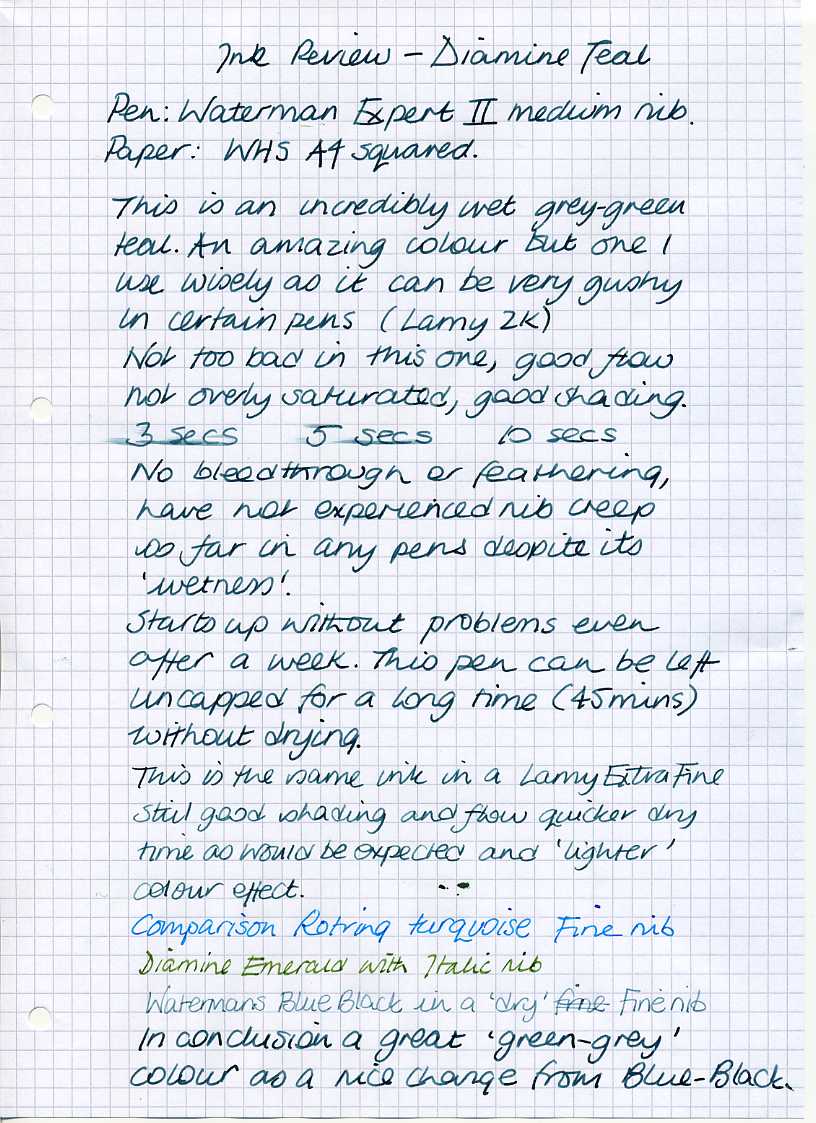 Ink Review – Diamine Teal
Pen: Waterman Expert II medium nib.
Paper: WHS A4 squared.
This is an incredibly wet grey-green
teal. An amazing colour but one I
use wisely as it can be very gushy
in certain pens (Lamy 2K)
Not too bad in this one, good flow
not overly saturated, good shading.
3 secs 5 secs 10 secs
No bleedthrough or feathering,
have not experienced nib creep
so far in any pens despite its
'wetness'.
Starts up without problems even
after a week. This pen can be left
uncapped for a long time (45mins)
without drying.
This is the same ink in a Lamy Extra Fine
Still good shading and flow quicker dry
time as would be expected and 'lighter'
colour effect.
Comparison Rotring turquoise Fine nib
Diamine Emerald with Italic nib
Watermans Blue Black in a 'dry' fine Fine nib
In conclusion a great 'green-grey'
colour as a nice change from Blue-Black.